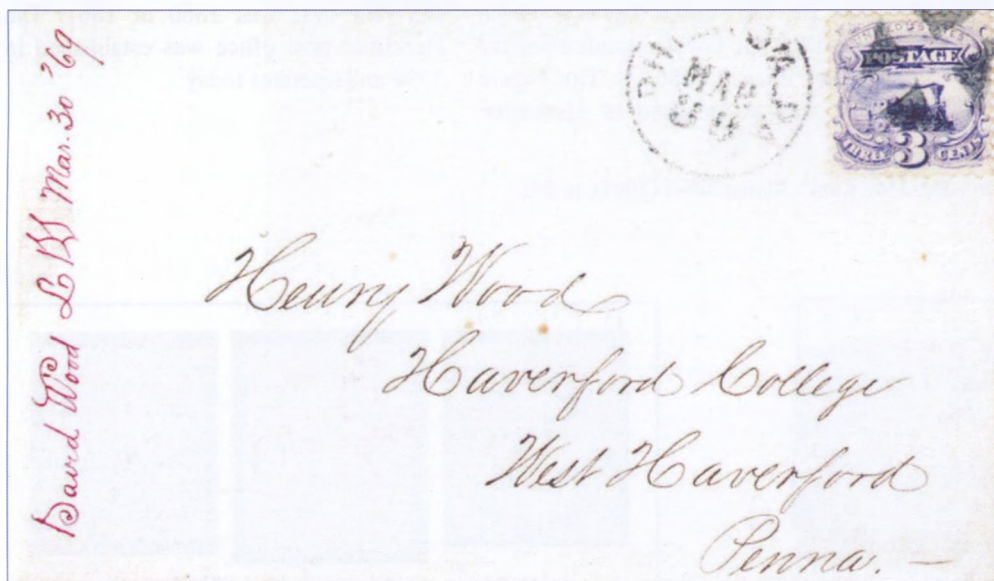 David Wood Mar. 30 '69
MAR
POSTAGE
THREE 3 CENTS
Henry Wood
Haverford College
West Haverford
Penna. —